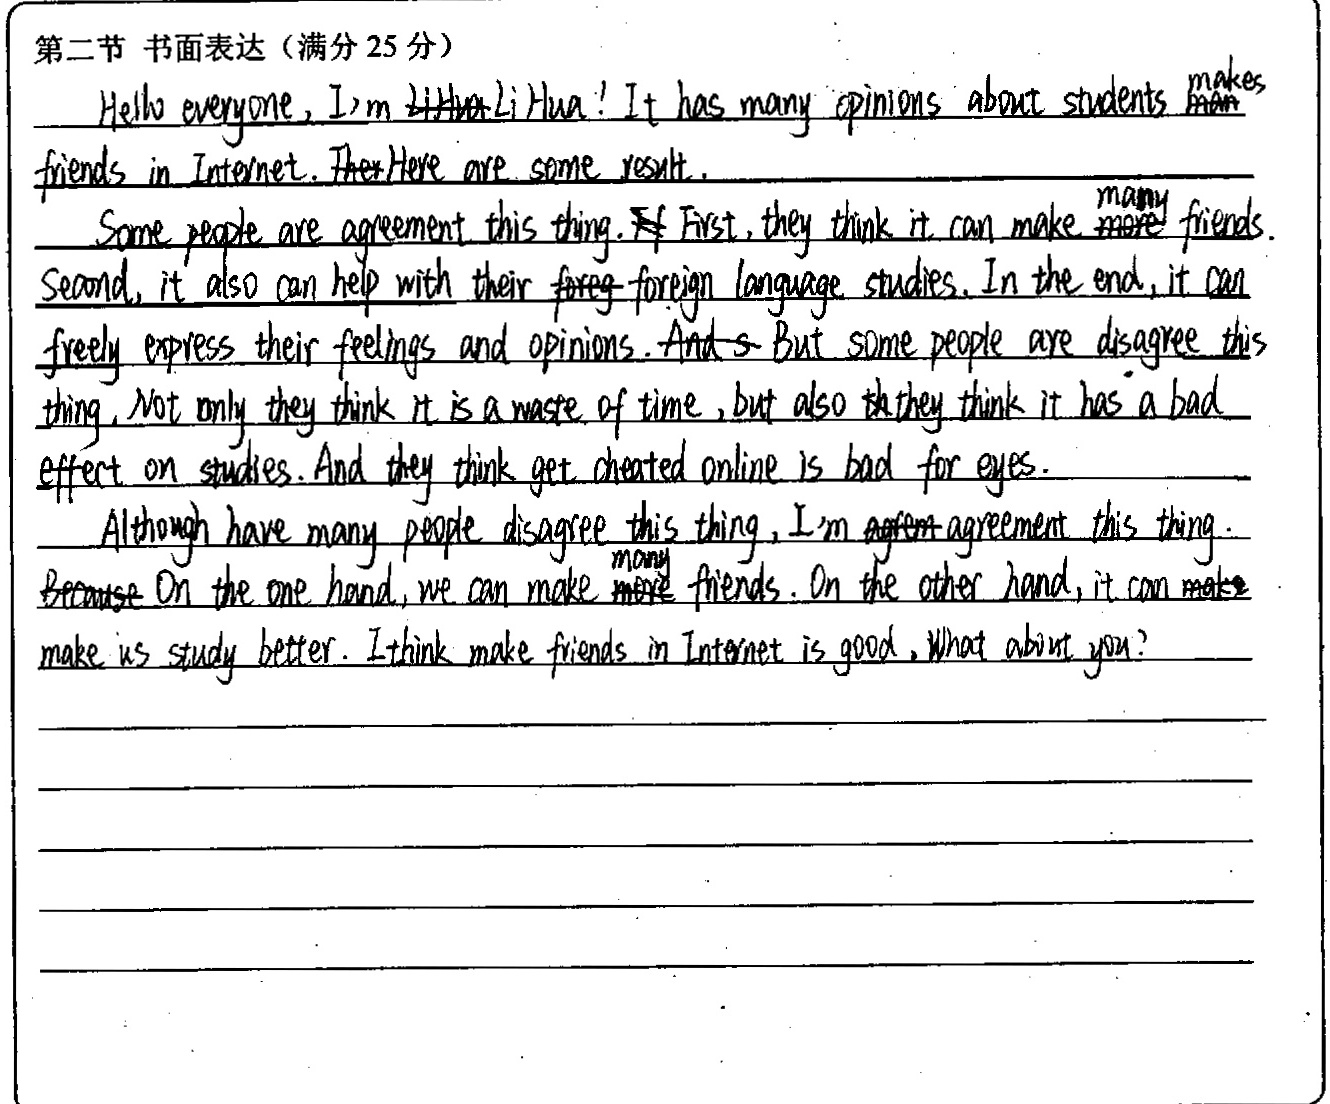 第二节 书面表达（满分 25 分）
Hello everyone, I'm Li Hua Li Hua! It has many opinions about students makes
friends in Internet. Ther Here are some result.
Some people are agreement this thing. If First, they think it can make many more friends.
Second, it also can help with their foreg foreign language studies. In the end, it can
freely express their feelings and opinions. And s But some people are disagree this
thing. Not only they think it is a waste of time, but also th they think it has a bad
effect on studies. And they think get cheated online is bad for eyes.
Although have many people disagree this thing, I'm agrem agreement this thing.
Because On the one hand, we can make many more friends. On the other hand, it can make
make us study better. I think make friends in Internet is good. What about you?